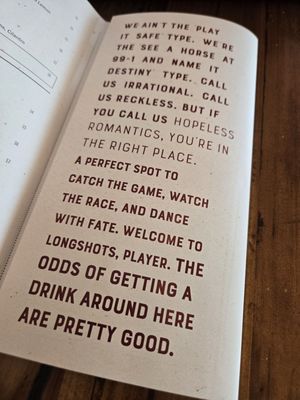 WE AIN'T THE PLAY
IT SAFE TYPE. WE'RE
THE SEE A HORSE AT
99-1 AND NAME IT
DESTINY TYPE. CALL
US IRRATIONAL. CALL
US RECKLESS. BUT IF
YOU CALL US HOPELESS
ROMANTICS, YOU'RE IN
THE RIGHT PLACE.
A PERFECT SPOT TO
CATCH THE GAME, WATCH
THE RACE, AND DANCE
WITH FATE. WELCOME TO
LONGSHOTS, PLAYER. THE
ODDS OF GETTING A
DRINK AROUND HERE
ARE PRETTY GOOD.